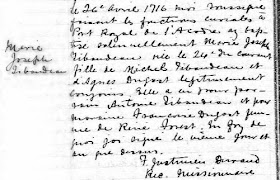 Marie
Joseph
Tibaudeau
le 26 avril 1716 moi soussigné
faisant les fonctions curiales à
Port Royal de l'Acadie ay baptisé
solennellement Marie Joseph
Tibaudeau née le 24 du courant
fille de Michel Tibaudeau et
d'Agnes Dugast legitimement
conjoints. Elle a eu pour parrain
Antoine Tibaudeau et pour
marraine Françoise Dugast femme
de René Forest. En foy de
quoi j'ai signé le même jour et
an que dessus.
f. Justinien Durand
Rec. Missionnaire